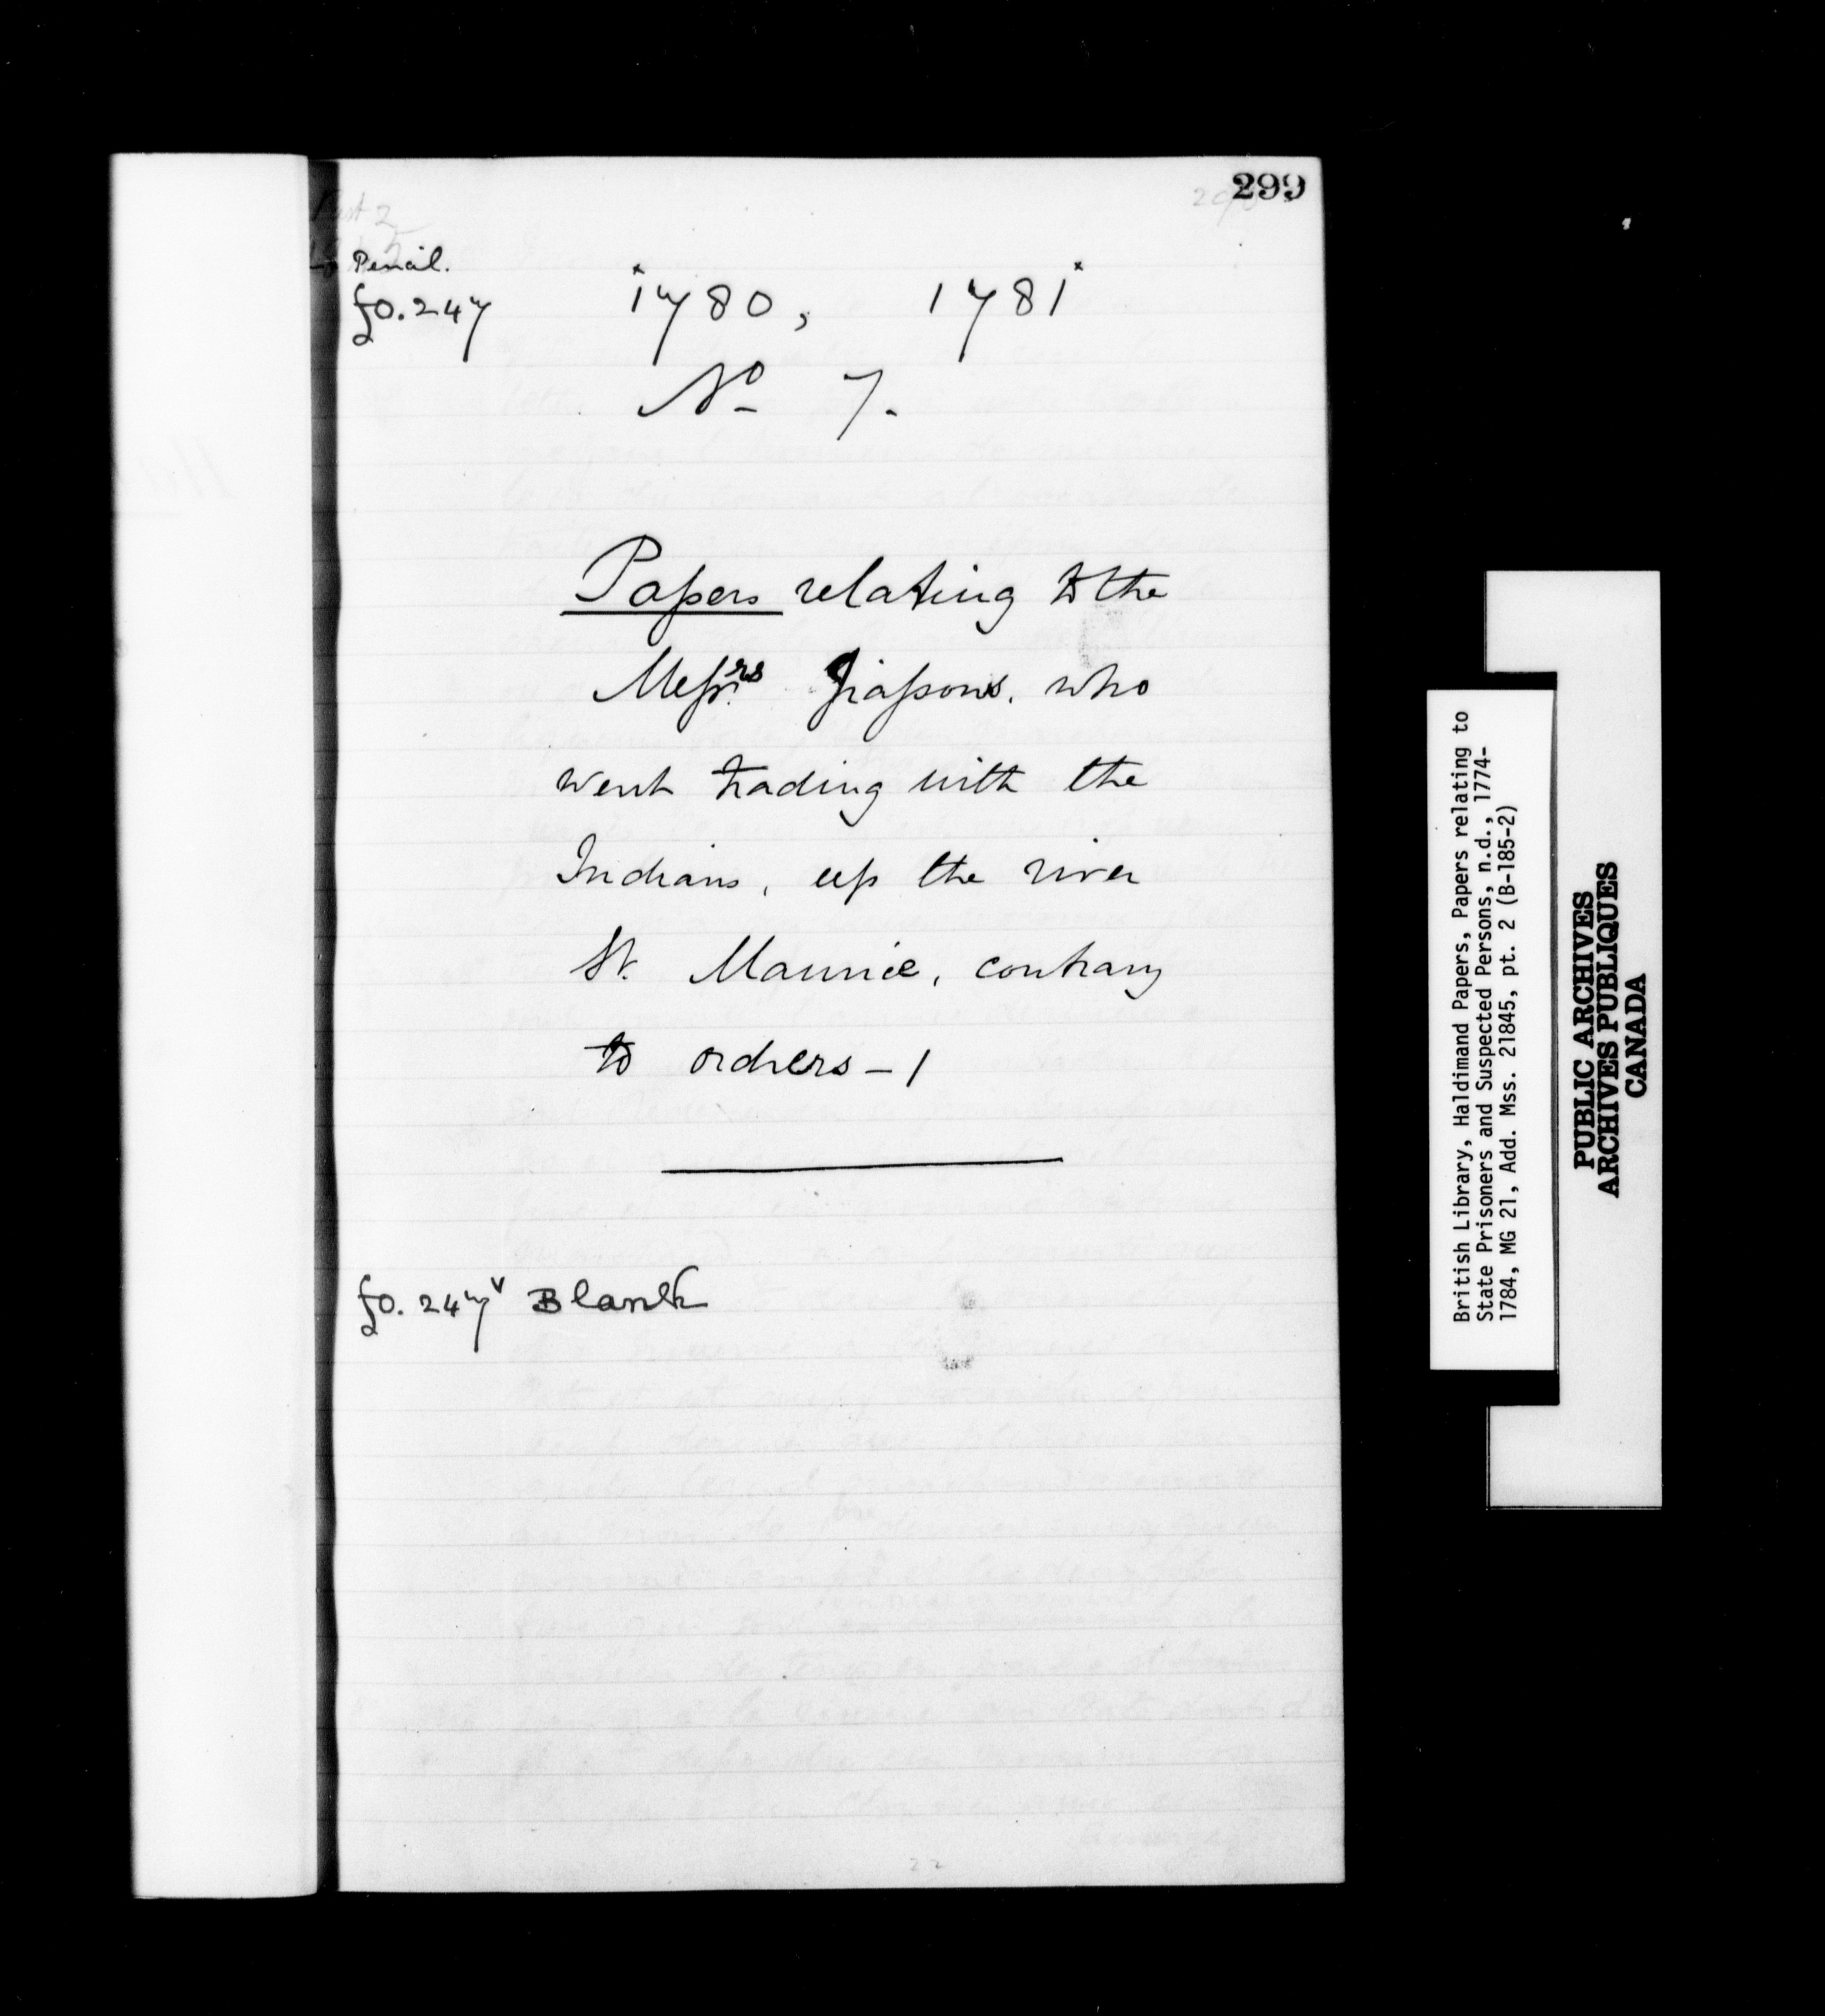 299
Pencil.
fo. 247
1780, 1781
No 7.
Papers relating to the
Messrs Giassons, who
went trading with the
Indians, up the river
St. Maurice, contrary
to orders - /
fo. 247v Blank
British Library, Haldimand Papers, Papers relating to
State Prisoners and Suspected Persons, n.d., 1774-
1784, MG 21, Add. Mss. 21845, pt. 2 (B-185-2)
PUBLIC ARCHIVES
ARCHIVES PUBLIQUES
CANADA